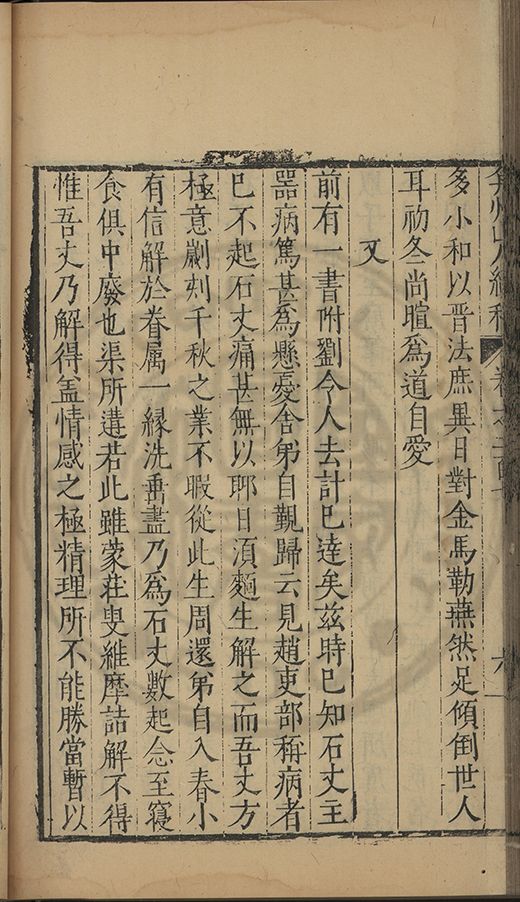 弇州山人續稿 卷之二百 六
多小和以晋法庶異日對金馬勒燕然足傾倒世人
耳初冬尚暄爲道自愛
又
前有一書附劉令人去計已達矣兹時已知石丈主
噐病篤甚爲懸憂舍弟自覲歸云見趙吏部稱病者
已不起石丈痛甚無以耶日湏麵生解之而吾丈方
極意劌刿千秋之業不暇從此生周還弟自入春小
有信解於眷属一縁洗垂盡乃爲石丈數起念至寢
食俱中廢也渠所遘若此雖蒙莊叟維摩詰解不得
惟吾丈乃解得盖情感之極精理所不能勝當暫以